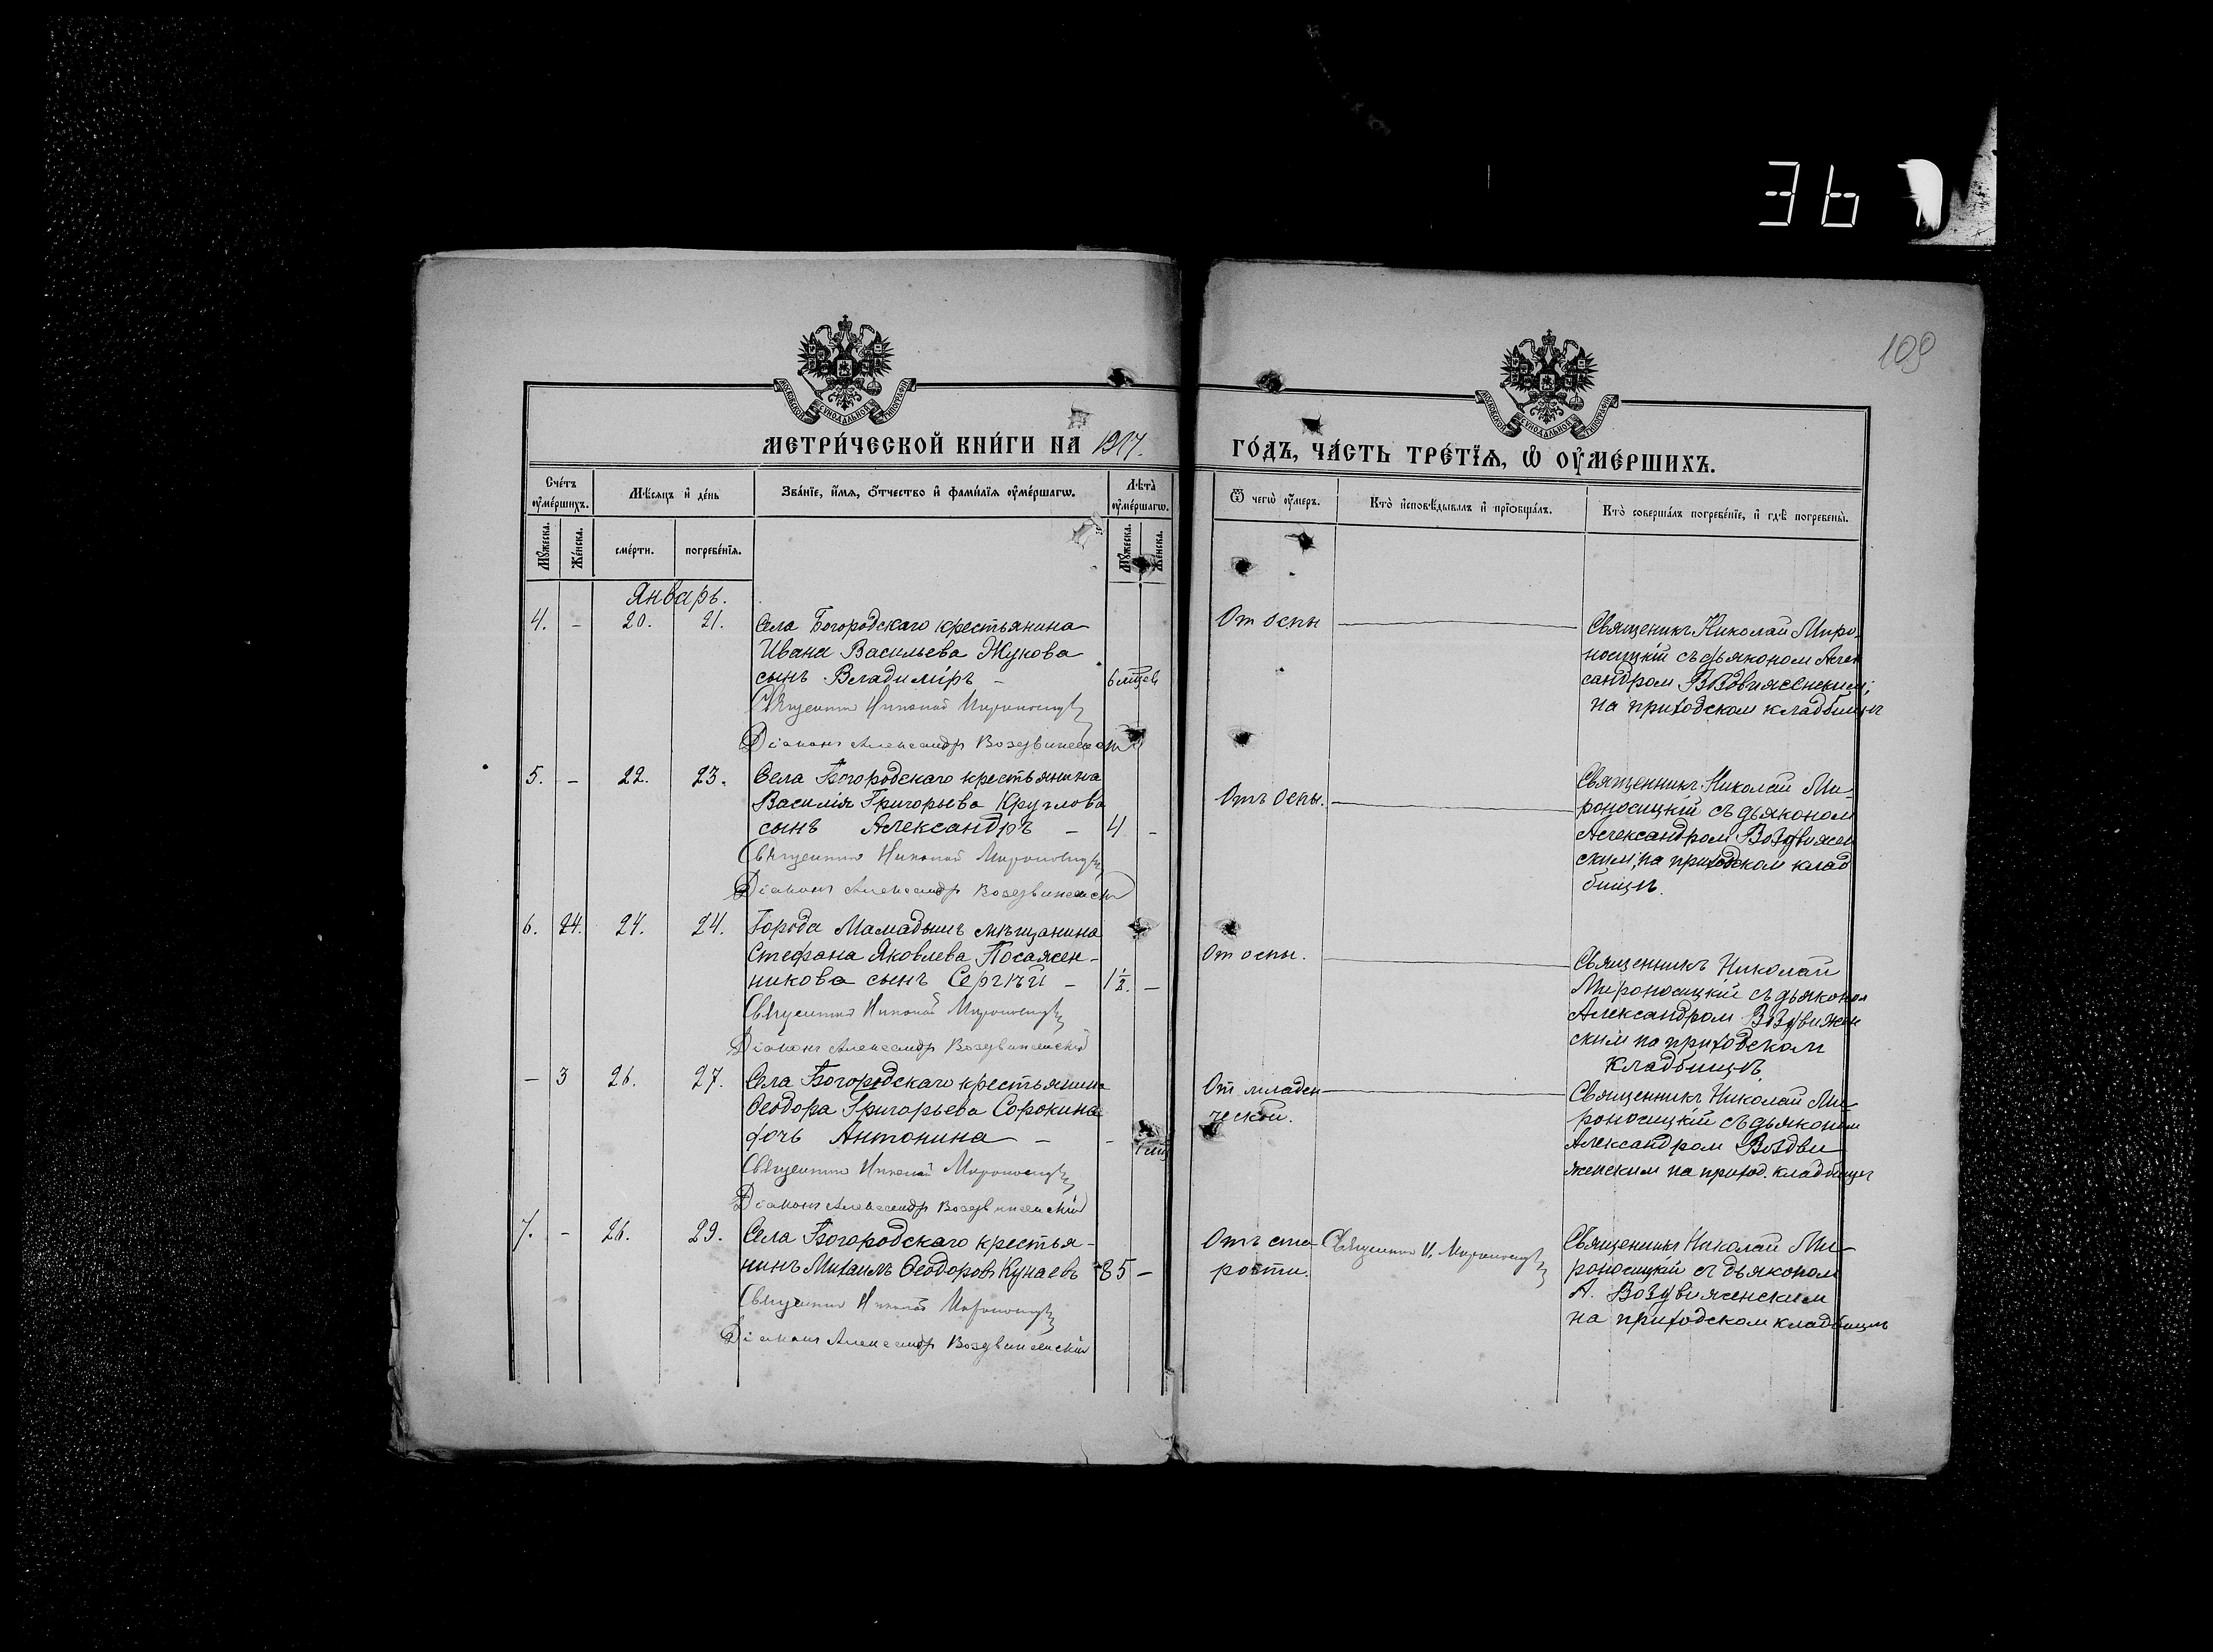 36
109
МОСКОВСКОЙ СѴНОДАЛЬНОЙ ТИПОГРАФІИ
МОСКОВСКОЙ СѴНОДАЛЬНОЙ ТИПОГРАФІИ
МЕТРИ́ЧЕСКОЙ КНИ́ГИ НА 1917.
ГО́ДЪ, ЧА́СТЬ ТРЕ́ТЇѦ, Ѡ҆ ОУ҆МЕ́РШИХЪ.
Сче́тъ оу҆ме́ршихъ.
Мѣ́сяцъ и҆ де́нь
Зва́нїе, и҆́мѧ, ѻ҆́тчество и҆ фами́лїѧ оу҆ме́ршагѡ.
Лѣ́та̀ оу҆ме́ршагѡ.
Ѿ чегѡ̀ оу҆́меръ.
Кто̀ и҆сповѣ́дывалъ и҆ прїѡбща́лъ.
Кто̀ соверша́лъ погребе́нїе, и҆ гдѣ̀ погребены̀.
Мꙋ́жеска.
Же́нска.
сме́рти.
погребе́нїѧ.
Мꙋ́жеска.
Же́нска.
Январь.
4. - 20. 21. Села Богородскаго крестьянина
Ивана Васильева Жукова
сынъ Владиміръ - 6 мцев
Священник Николай Мироносицк
Діаконъ Александр Воздвиженск
От оспы
Священикъ Николай Миро-
носицкій съ дьяконом Алек
сандром Воздвиженским;
на приходском кладбищѣ
5. - 22. 23. Села Богородскаго крестьянина
Василія Григорьева Круглова
сынъ Александръ - 4 -
Священник Николай Мироносицк
Діаконъ Александр Воздвиженск
Отъ оспы.
Священникъ Николай Ми-
роносицкій съ дьяконом
Александром Воздвижен
ским, на приходском клад
бищѣ.
6. 24. 24. 24. Города Мамадыш мѣщанина
Стефана Яковлева Посажен-
никова сынъ Сергѣй - 1½. -
Священник Николай Мироносицк
Діаконъ Александр Воздвиженскій
От оспы.
Священникъ Николай
Мироносицкій съ дьяконом
Александром Воздвижен
ским на приходском
кладбищѣ
- 3 26. 27. Села Богородскаго крестьянина
Ѳеодора Григорьева Сорокина
дочь Антонина - -
Священник Николай Мироносицк
Діаконъ Александр Воздвиженскій
От младен
ческой.
Священникъ Николай Ми-
роносицкій съ дьяконом
Александром Воздви
женским на приход. кладбищѣ
7. - 26. 29. Села Богородскаго крестья-
нинъ Михаилъ Ѳеодоровъ Кунаевъ 85 -
Священник Николай Мироносицк
Діаконъ Александр Воздвиженскій
Отъ ста-
рости.
Священник Н. Мироносицк
Священникъ Николай Ми-
роносицкій съ дьяконом
А. Воздвиженским
на приходском кладбищѣ